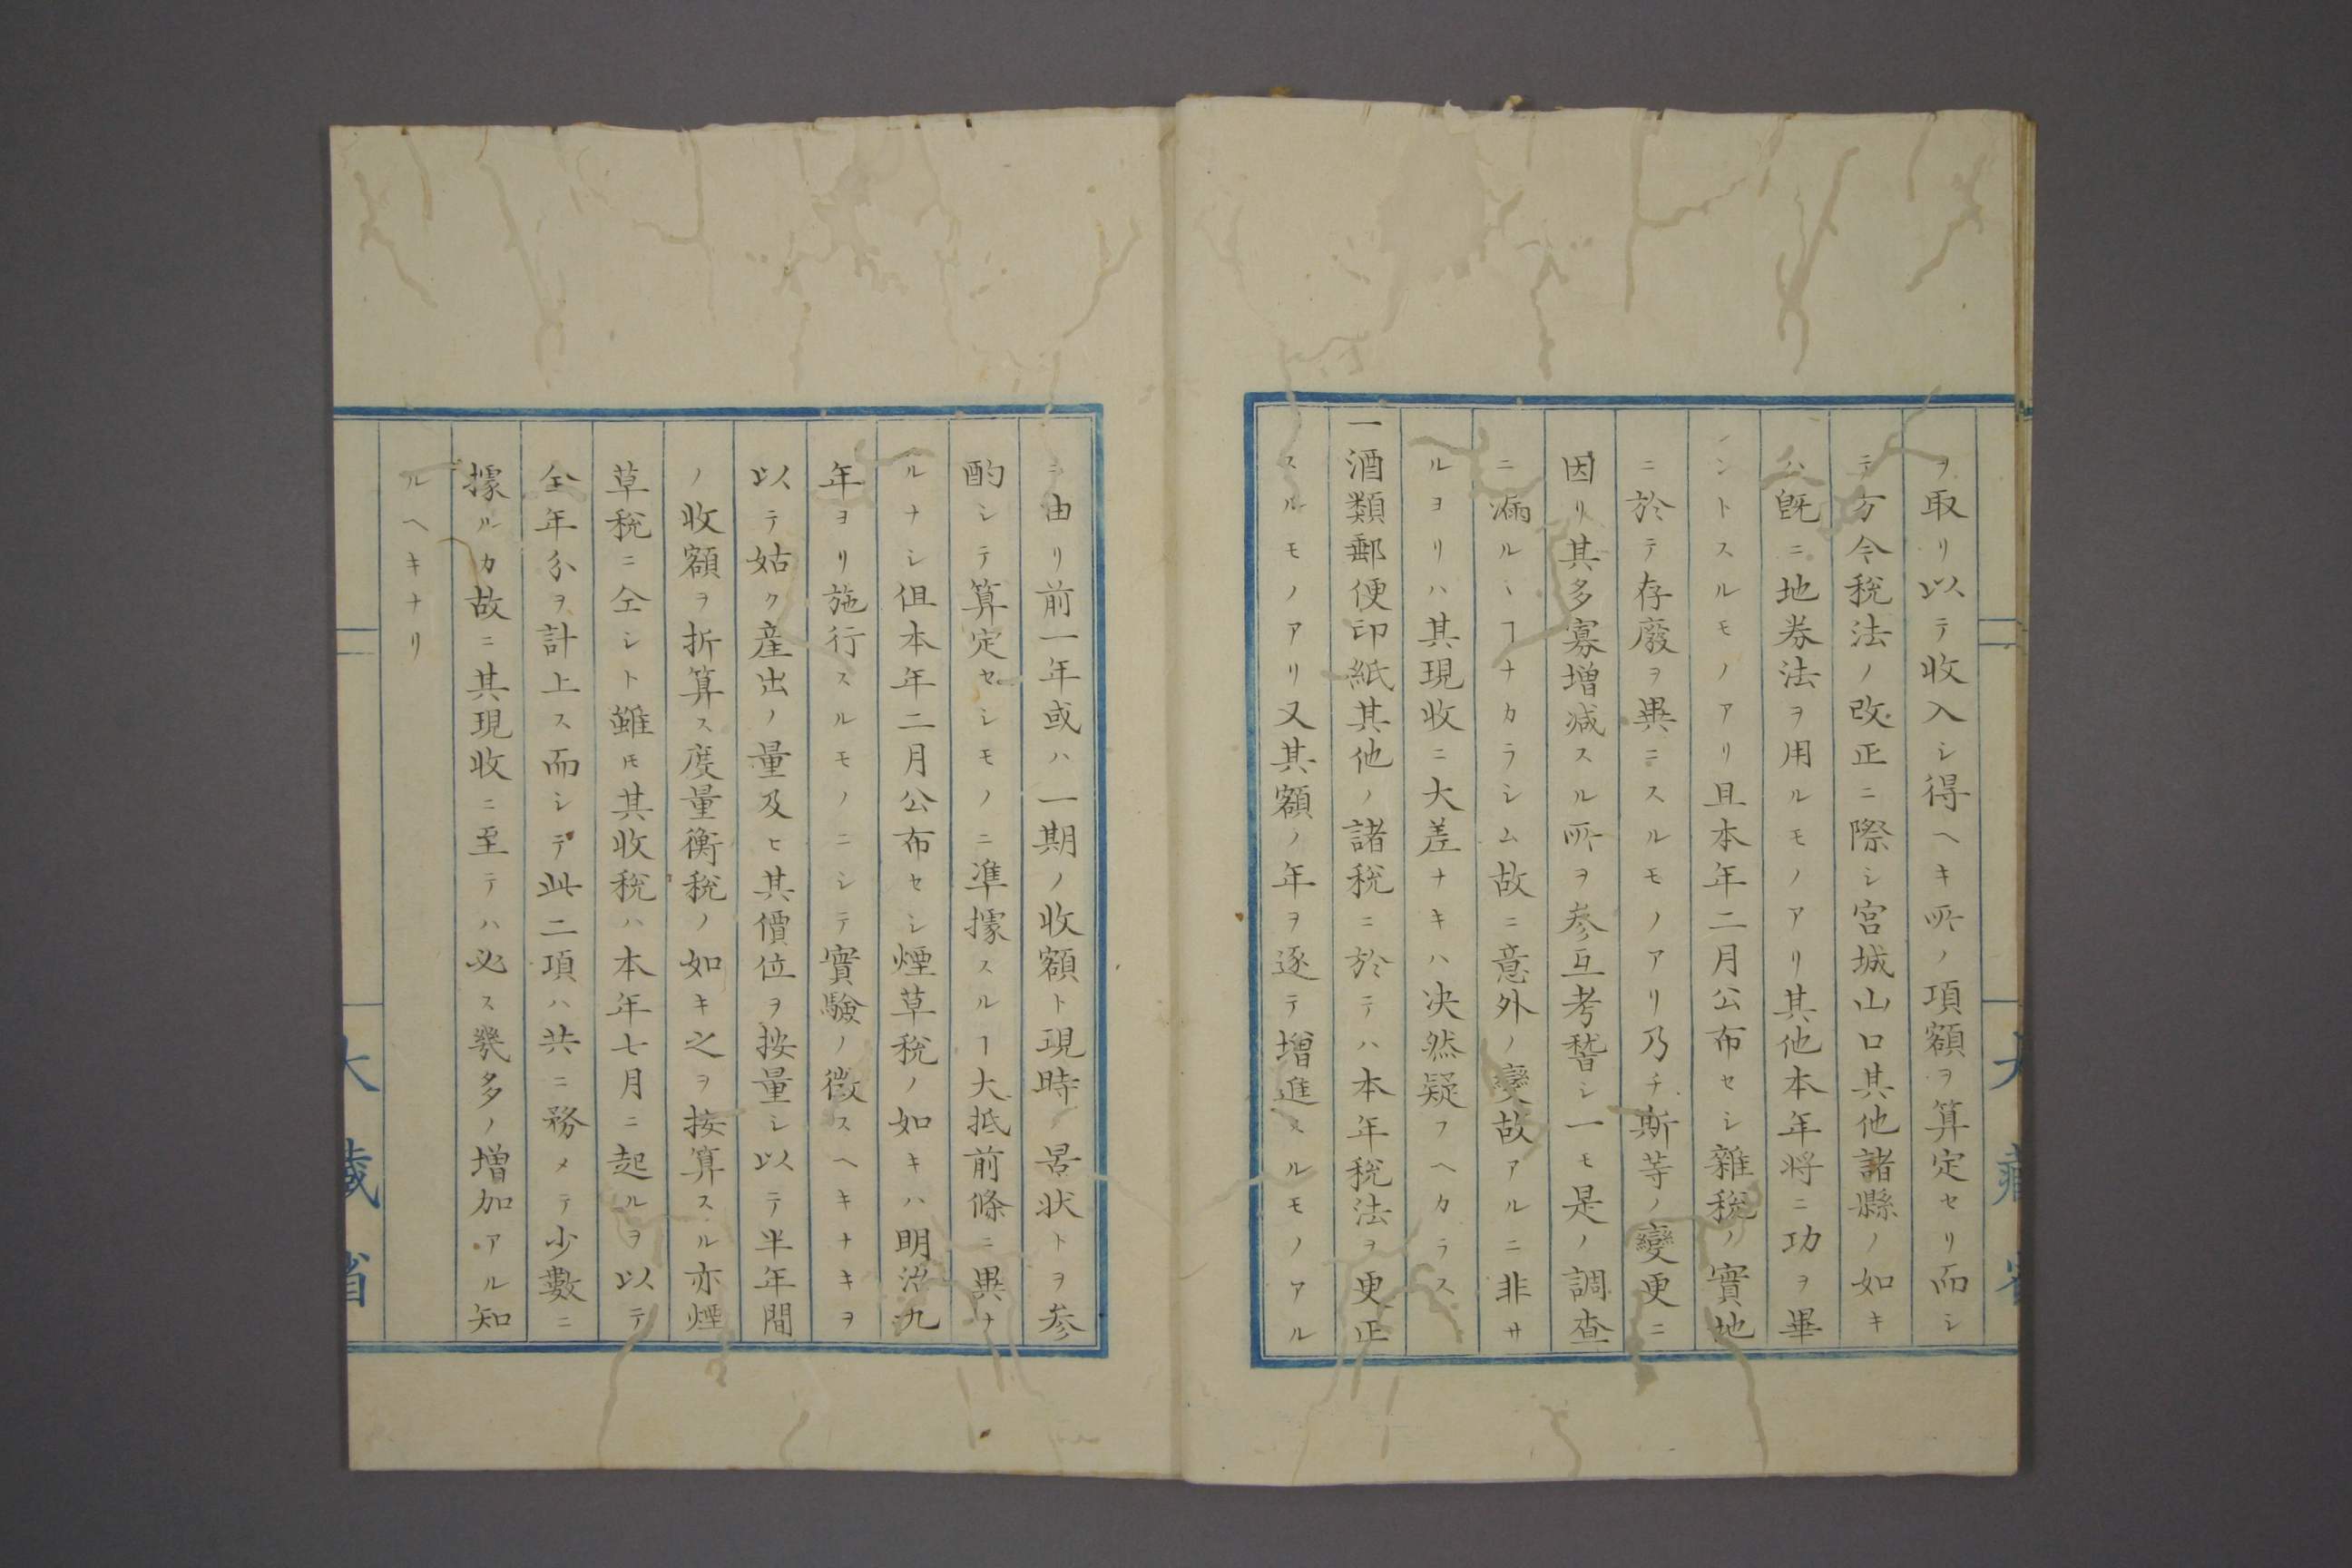 ヲ取リ以テ收入シ得ヘキ所ノ項額ヲ算定セリ而シ
テ方今税法ノ改正ニ際シ宮城山口其他諸縣ノ如キ
ハ既ニ地券法ヲ用ルモノアリ其他本年将ニ功ヲ畢
ントスルモノアリ且本年二月公布セシ雜税ノ實地
ニ於テ存廢ヲ異ニスルモノアリ乃チ斯等ノ變更ニ
因リ其多寡増減スル所ヲ参互考稽シ一モ是ノ調査
ニ漏ルヽヿナカラシム故ニ意外ノ變故アルニ非サ
ルヨリハ其現收ニ大差ナキハ决然疑フヘカラス
一酒類郵便印紙其他ノ諸税ニ於テハ本年税法ヲ更正
スルモノアリ又其額ノ年ヲ逐テ增進スルモノアル
ニ由リ前一年或ハ一期ノ收額ト現時ノ景状トヲ参
酌シテ算定セシモノニ準據スルヿ大抵前條ニ異ナ
ルナシ但本年二月公布セシ煙草税ノ如キハ明治九
年ヨリ施行スルモノニシテ實驗ノ徴スヘキナキヲ
以テ姑ク産出ノ量及ヒ其價位ヲ按量シ以テ半年間
ノ收額ヲ折算ス度量衡税ノ如キ之ヲ按算スル亦煙
草税ニ仝シト雖𪜈其收税ハ本年七月ニ起ルヲ以テ
全年分ヲ計上ス而シテ此二項ハ共ニ務メテ少數ニ
據ルカ故ニ其現收ニ至テハ必ス幾多ノ増加アル知
ルヘキナリ
大藏省
大藏省